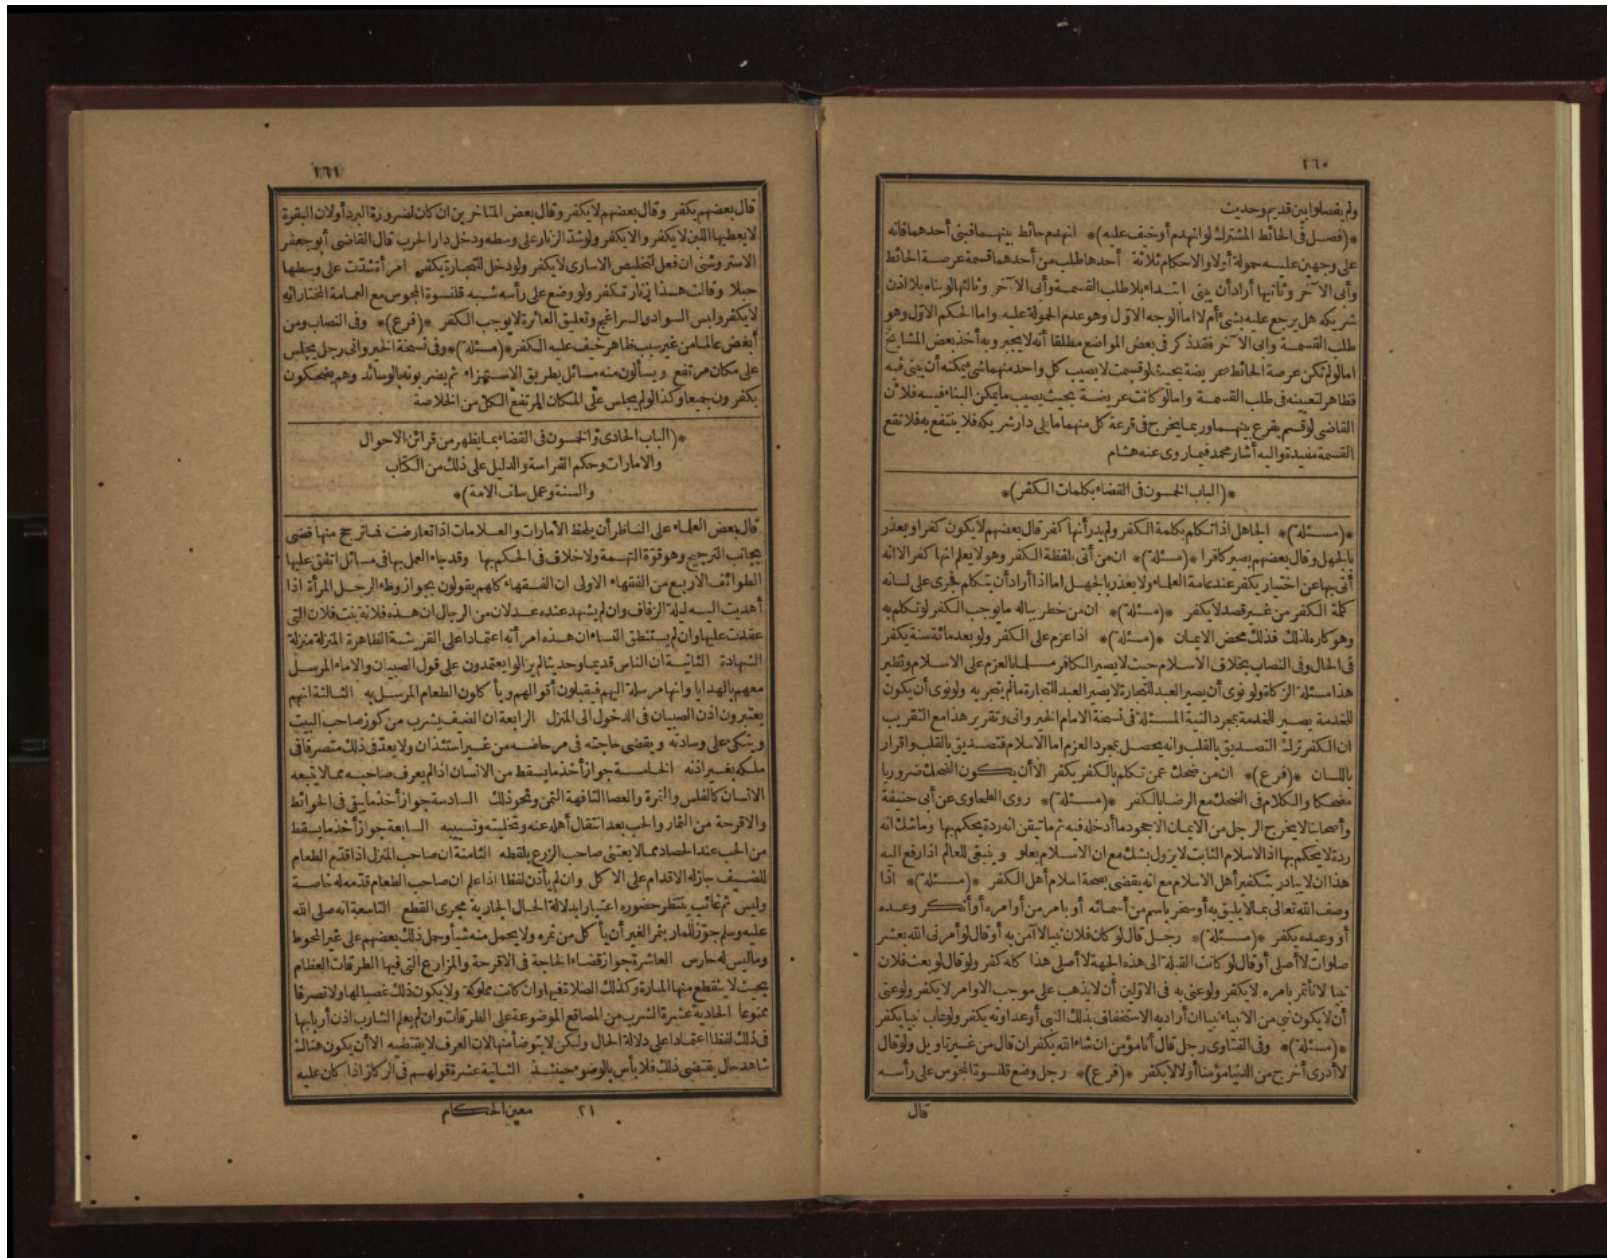 ١٦٠
ولم يفصلوا بين قديم وحديث
*(فصل فى الحائط المشترك لو انهدم أو خيف عليه)* انهدم حائط بينهما فبنى أحدهما فانه
على وجهين عليه حمولة أولا والاحكام ثلاثة أحدها طلب من أحدهما قسمة عرصة الحائط
وأبى الآخر وثانيها أراد أن يبنى ابتداء بلا طلب القسمة وأبى الآخر وثالثها لو بناه بلا اذن
شريكه هل يرجع عليه بشئ أم لا اما الوجه الاوّل وهو عدم الحمولة عليه واما الحكم الاوّل وهو
طلب القسمة وابى الآخر فقد ذكر فى بعض المواضع مطلقا أنه لا يجبر وبه أخذ بعض المشايخ
اما لو لم تكن عرصة الحائط عريضة بحيث لو قسمت لا يصيب كل واحد منهما شئ يمكنه أن يبنى فيه
فظاهر لتعنته فى طلب القسمة واما لو كانت عريضة بحيث يصيب ما يمكن البناء فيه فلان
القاضى لو قسم يقرع بينهما وربما يخرج فى قرعة كل منهما ما يلى دار شريكه فلا ينتفع به فلا تقع
القسمة مفيدة واليه أشار محمد فيما روى عنه هشام
*(الباب الخمسون فى القضاء بكلمات الكفر)*
*(مسئلة)* الجاهل اذا تكلم بكلمة الكفر ولم يدر أنها كفر قال بعضهم لا يكون كفرا ويعذر
بالجهل وقال بعضهم يصير كافرا *(مسئلة)* ان من أتى بلفظة الكفر وهو لا يعلم انها كفر الا انه
أتى بها عن اختيار يكفر عند عامة العلماء ولا يعذر بالجهل اما اذا أراد أن يتكلم فجرى على لسانه
كلمة الكفر من غير قصد لا يكفر *(مسئلة)* ان من خطر بباله ما يوجب الكفر لو تكلم به
وهو كاره لذلك فذلك محض الايمان *(مسئلة)* اذا عزم على الكفر ولو بعد مائة سنة يكفر
فى الحال وفى النصاب بخلاف الاسلام حيث لا يصير الكافر مسلما بالعزم على الاسلام ونظير
هذا مسئلة الزكاة ولو نوى أن يصير العبد للتجارة لا يصير العبد للتجارة ما لم يتجر به ولو نوى أن يكون
للخدمة يصير للخدمة بمجرد النية المسئلة فى نسخة الامام الخيروانى وتقرير هذا مع التقريب
ان الكفر ترك التصديق بالقلب وانه يحصل بمجرد العزم اما الاسلام فتصديق بالقلب واقرار
باللسان *(فرع)* ان من ضحك عمن تكلم بالكفر يكفر الا أن يكون الضحك ضروريا
مضحكا والكلام فى الضحك مع الرضا بالكفر *(مسئلة)* روى الطحاوى عن أبى حنيفة
وأصحابنا لا يخرج الرجل من الايمان الا جحود ما أدخله فيه ثم ما تيقن انه ردة يحكم بها وما شك انه
ردة لا يحكم بها اذ الاسلام الثابت لا يزول بشك مع ان الاسلام يعلو وينبغى للعالم اذا رفع اليه
هذا ان لا يبادر بتكفير أهل الاسلام مع انه يقضى بصحة اسلام أهل الكفر *(مسئلة)* اذا
وصف الله تعالى بما لا يليق به أو سخر باسم من أسمائه أو بامر من أوامره أو أنكر وعده
أو وعيده يكفر *(مسئلة)* رجل قال لو كان فلان نبيا لا آمن به أو قال لو أمرنى الله بعشر
صلوات لا أصلى أو قال لو كانت القبلة الى هذه الجهة لا أصلى هذا كله كفر ولو قال لو بعث فلان
نبيا لا نأتمر بامره لا يكفر ولو عنى به فى الاولين أن لا يذهب على موجب الاوامر لا يكفر ولو عنى
أن لا يكون نبى من الانبياء نبيا ان أراد به الاستخفاف بذلك النبى أو عداوته يكفر ولو عاب نبيا يكفر
*(مسئلة)* وفى الفتاوى رجل قال أنا مؤمن ان شاء الله يكفر ان قال من غير تاويل ولو قال
لا أدرى أخرج من الدنيا مؤمنا أولا لا يكفر *(فرع)* رجل وضع قلنسوة المجوس على رأسه
قال
١٦١
قال بعضهم يكفر وقال بعضهم لا يكفر وقال بعض المتاخرين ان كان لضرورة البرد أو لان البقرة
لا يعطيها اللبن لا يكفر والا يكفر ولو شدّ الزنار على وسطه ودخل دار الحرب قال القاضى أبو جعفر
الاستروشنى ان فعل لتخليص الاسارى لا يكفر ولو دخل للتجارة يكفر امرأة شدّت على وسطها
حبلا وقالت هذا زنار تكفر ولو وضع على رأسه شبه قلنسوة المجوس مع العمامة المختار انه
لا يكفر ولبس السوادى السراغج وتعليق العائرة لا يوجب الكفر *(فرع)* وفى النصاب ومن
أبغض عالما من غير سبب ظاهر خيف عليه الكفر *(مسئلة)* وفى نسخة الخيروانى رجل يجلس
على مكان مرتفع ويسألون منه مسائل بطريق الاستهزاء ثم يضربونه بالوسائد وهم يضحكون
يكفرون جميعا وكذا لو لم يجلس على المكان المرتفع الكل من الخلاصة
*(الباب الحادى والخمسون فى القضاء بما يظهر من قرائن الاحوال
والامارات وحكم الفراسة والدليل على ذلك من الكتاب
والسنة وعمل سلف الامة)*
قال بعض العلماء على الناظر أن يلحظ الأمارات والعلامات اذا تعارضت فما ترجح منها قضى
بجانب الترجيح وهو قوّة التهمة ولا خلاف فى الحكم بها وقد جاء العمل بها فى مسائل اتفق عليها
الطوائف الاربع من الفقهاء الاولى ان الفقهاء كلهم يقولون بجواز وطء الرجل المرأة اذا
أهديت اليه ليلة الزفاف وان لم يشهد عنده عدلان من الرجال ان هذه فلانة بنت فلان التى
عقدت عليها وان لم يستنطق النساء ان هذه امرأته اعتمادا على القرينة الظاهرة المنزلة منزلة
الشهادة الثانية ان الناس قديما وحديثا لم يزالوا يعتمدون على قول الصبيان والاماء المرسل
معهم بالهدايا وانها مرسلة اليهم فيقبلون أقوالهم ويأكلون الطعام المرسل به الثالثة انهم
يعتبرون اذن الصبيان فى الدخول الى المنزل الرابعة ان الضيف يشرب من كوز صاحب البيت
ويتكئ على وسادته ويقضى حاجته فى مرحاضه من غير استئذان ولا يعدّ فى ذلك متصرفا فى
ملكه بغير اذنه الخامسة جواز أخذ ما يسقط من الانسان اذا لم يعرف صاحبه مما لا يتبعه
الانسان كالفلس والتمرة والعصا التافهة الثمن ونحو ذلك السادسة جواز أخذ ما يبقى فى الحوائط
والاقرحة من الثمار والحب بعد انتقال أهله عنه وتخليته وتسييبه السابعة جواز أخذ ما يسقط
من الحب عند الحصاد مما لا يعتنى صاحب الزرع بلقطه الثامنة ان صاحب المنزل اذا قدّم الطعام
للضيف جاز له الاقدام على الاكل وان لم يأذن لفظا اذا علم ان صاحب الطعام قدّمه له خاصة
وليس ثم غائب ينتظر حضوره اعتبارا بدلالة الحال الجارية مجرى القطع التاسعة انه صلى الله
عليه وسلم جوّز للمار بثمر الغير أن يأكل من ثمره ولا يحمل منه شيأ وحمل ذلك بعضهم على غير المحوط
وما ليس له حارس العاشرة جواز قضاء الحاجة فى الاقرحة والمزارع التى فيها الطرقات العظام
بحيث لا ينقطع منها المارة وكذلك الصلاة فيها وان كانت مملوكة ولا يكون ذلك غصبا لها ولا تصرفا
ممنوعا الحادية عشرة الشرب من المصانع الموضوعة على الطرقات وان لم يعلم الشارب اذن أربابها
فى ذلك لفظا اعتمادا على دلالة الحال ولكن لا يتوضأ منها لان العرف لا يقتضيه الا أن يكون هناك
شاهد حال يقتضى ذلك فلا بأس بالوضوء حينئذ الثانية عشرة قولهم فى الركاز اذا كان عليه
٢١ معين الحكام